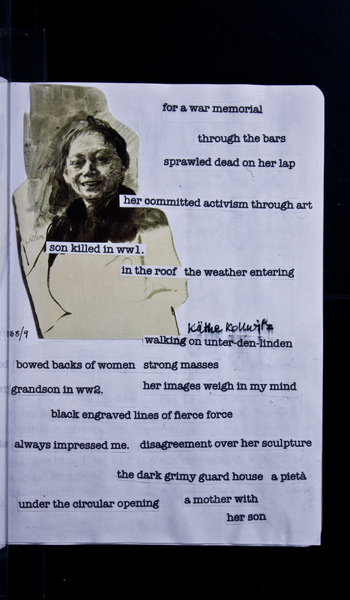 for a war memorial
through the bars
sprawled dead on her lap
her committed activism through art
son killed in ww1.
in the roof the weather entering
Käthe Kollwitz
walking on unter-den-linden
bowed backs of women strong masses
grandson in ww2. her images weigh in my mind
black engraved lines of fierce force
always impressed me. disagreement over her sculpture
the dark grimy guard house a pietà
under the circular opening a mother with
her son